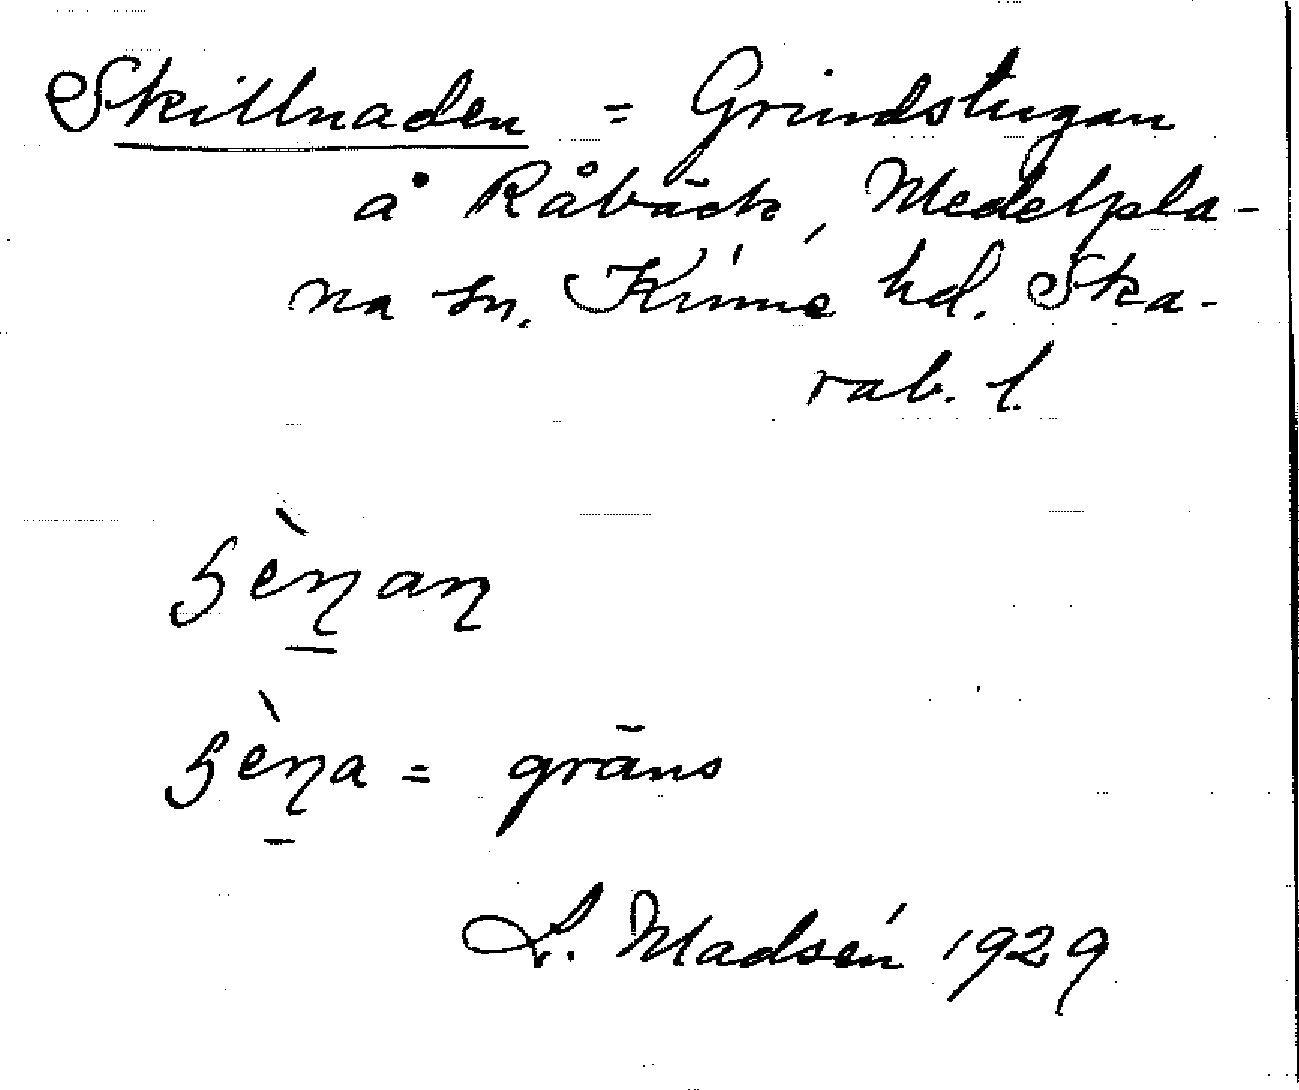 Skillnaden = Grindstugan
å Råbäck, Medelpla-
na sn. Kinne hd. Ska-
rab. l.
ʂèn̠an
ʂèn̠a = gräns
L. Madsén 1929